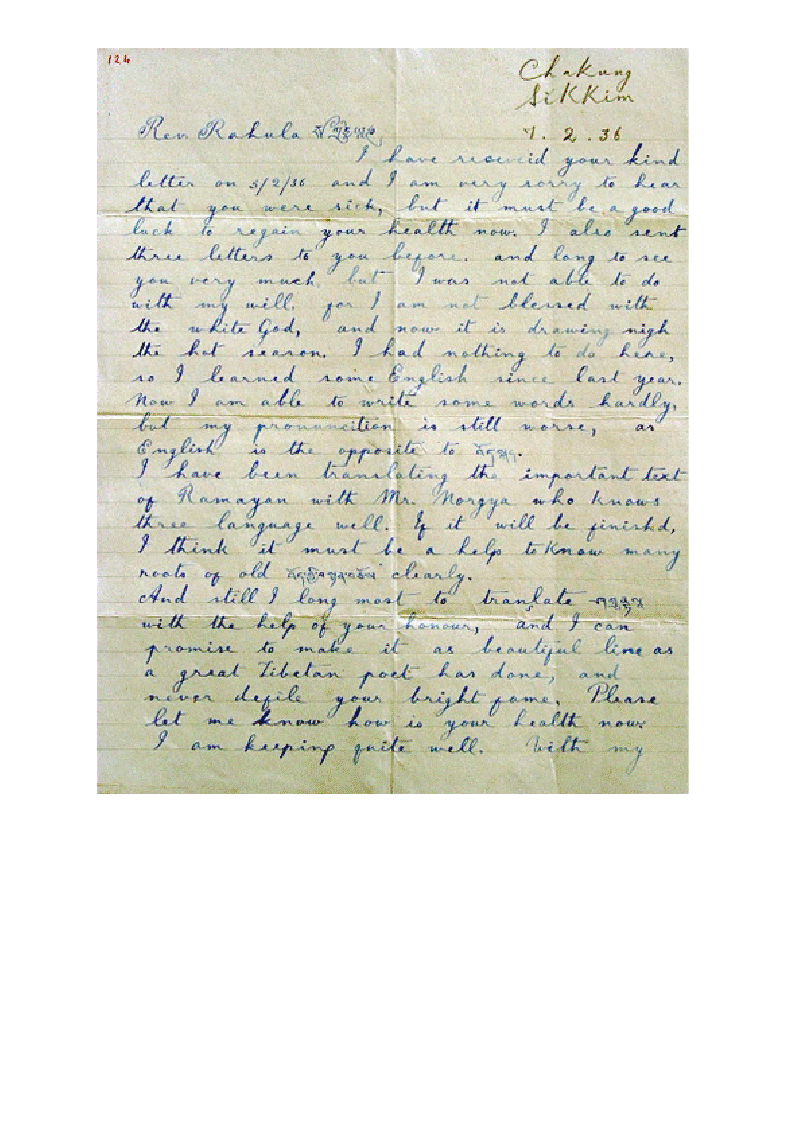 124
Chakung
Sikkim
7. 2. 36
Rev Rahula
I have resceveid your kind
letter on 5/2/36 and I am very sorry to hear
that you were sick, but it must be a good
luck to regain your health now. I also sent
three letters to you before. and long to see
you very much. but I was not able to do
with my will. for I am not blessed with
the white God, and now it is drawing nigh
the hot season. I had nothing to do here,
so I learned some English since last year.
Now I am able to write some words hardly,
but my pronuncition is still worse, as
English is the opposite to
I have been translating the important text
of Ramayan with Mr. Norgya who knows
three language well. If it will be finished,
I think it must be a help to know many
roots of old clearly.
And still I long most to translate
with the help of your honour, and I can
promise to make it as beautiful line as
a great Tibetan poet has done, and
never defile your bright fame. Please
let me know how is your health now.
I am keeping quite well. With my